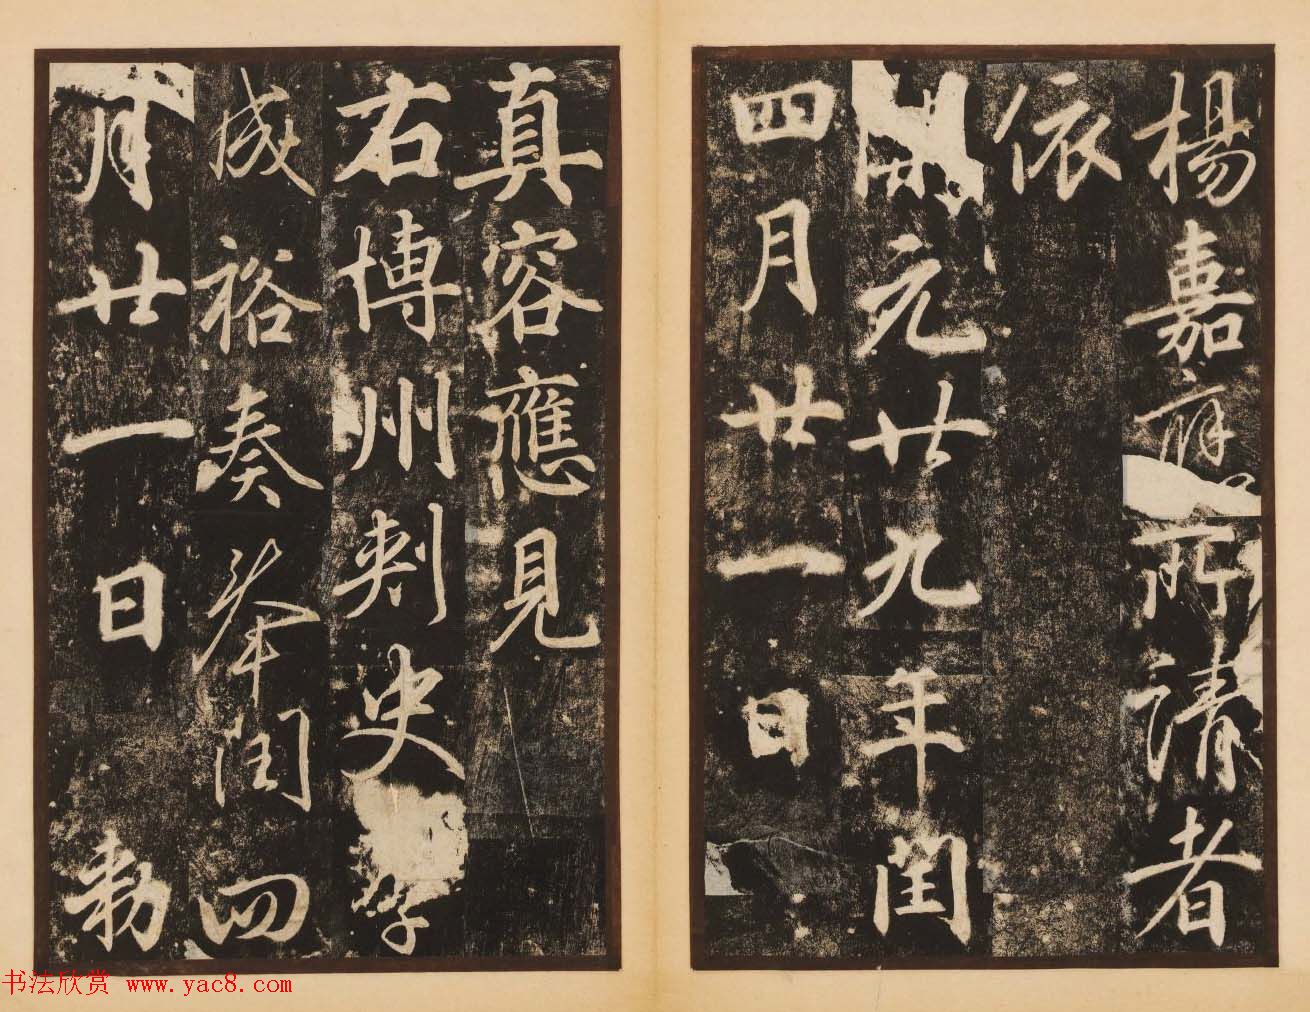 楊嘉應所請者
依
開元廿九年閏
四月廿一日
真容應見
右博州刺史李
成裕奏奉閏四
月廿一日 勅
书法欣赏 www.yac8.com